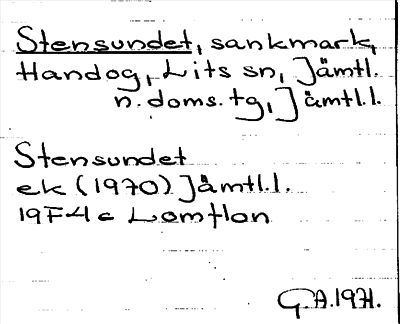 Stensundet, sankmark,
Handog, Lits sn, Jämtl.
n. doms. tg, Jämtl.l.
Stensundet
ek (1970) Jämtl.l.
19F4c Lomtlon
G.A.1971.